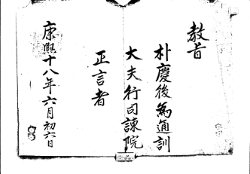 教旨
朴慶後為通訓
大夫行司諫院
正言者
康熙十八年六月初六日